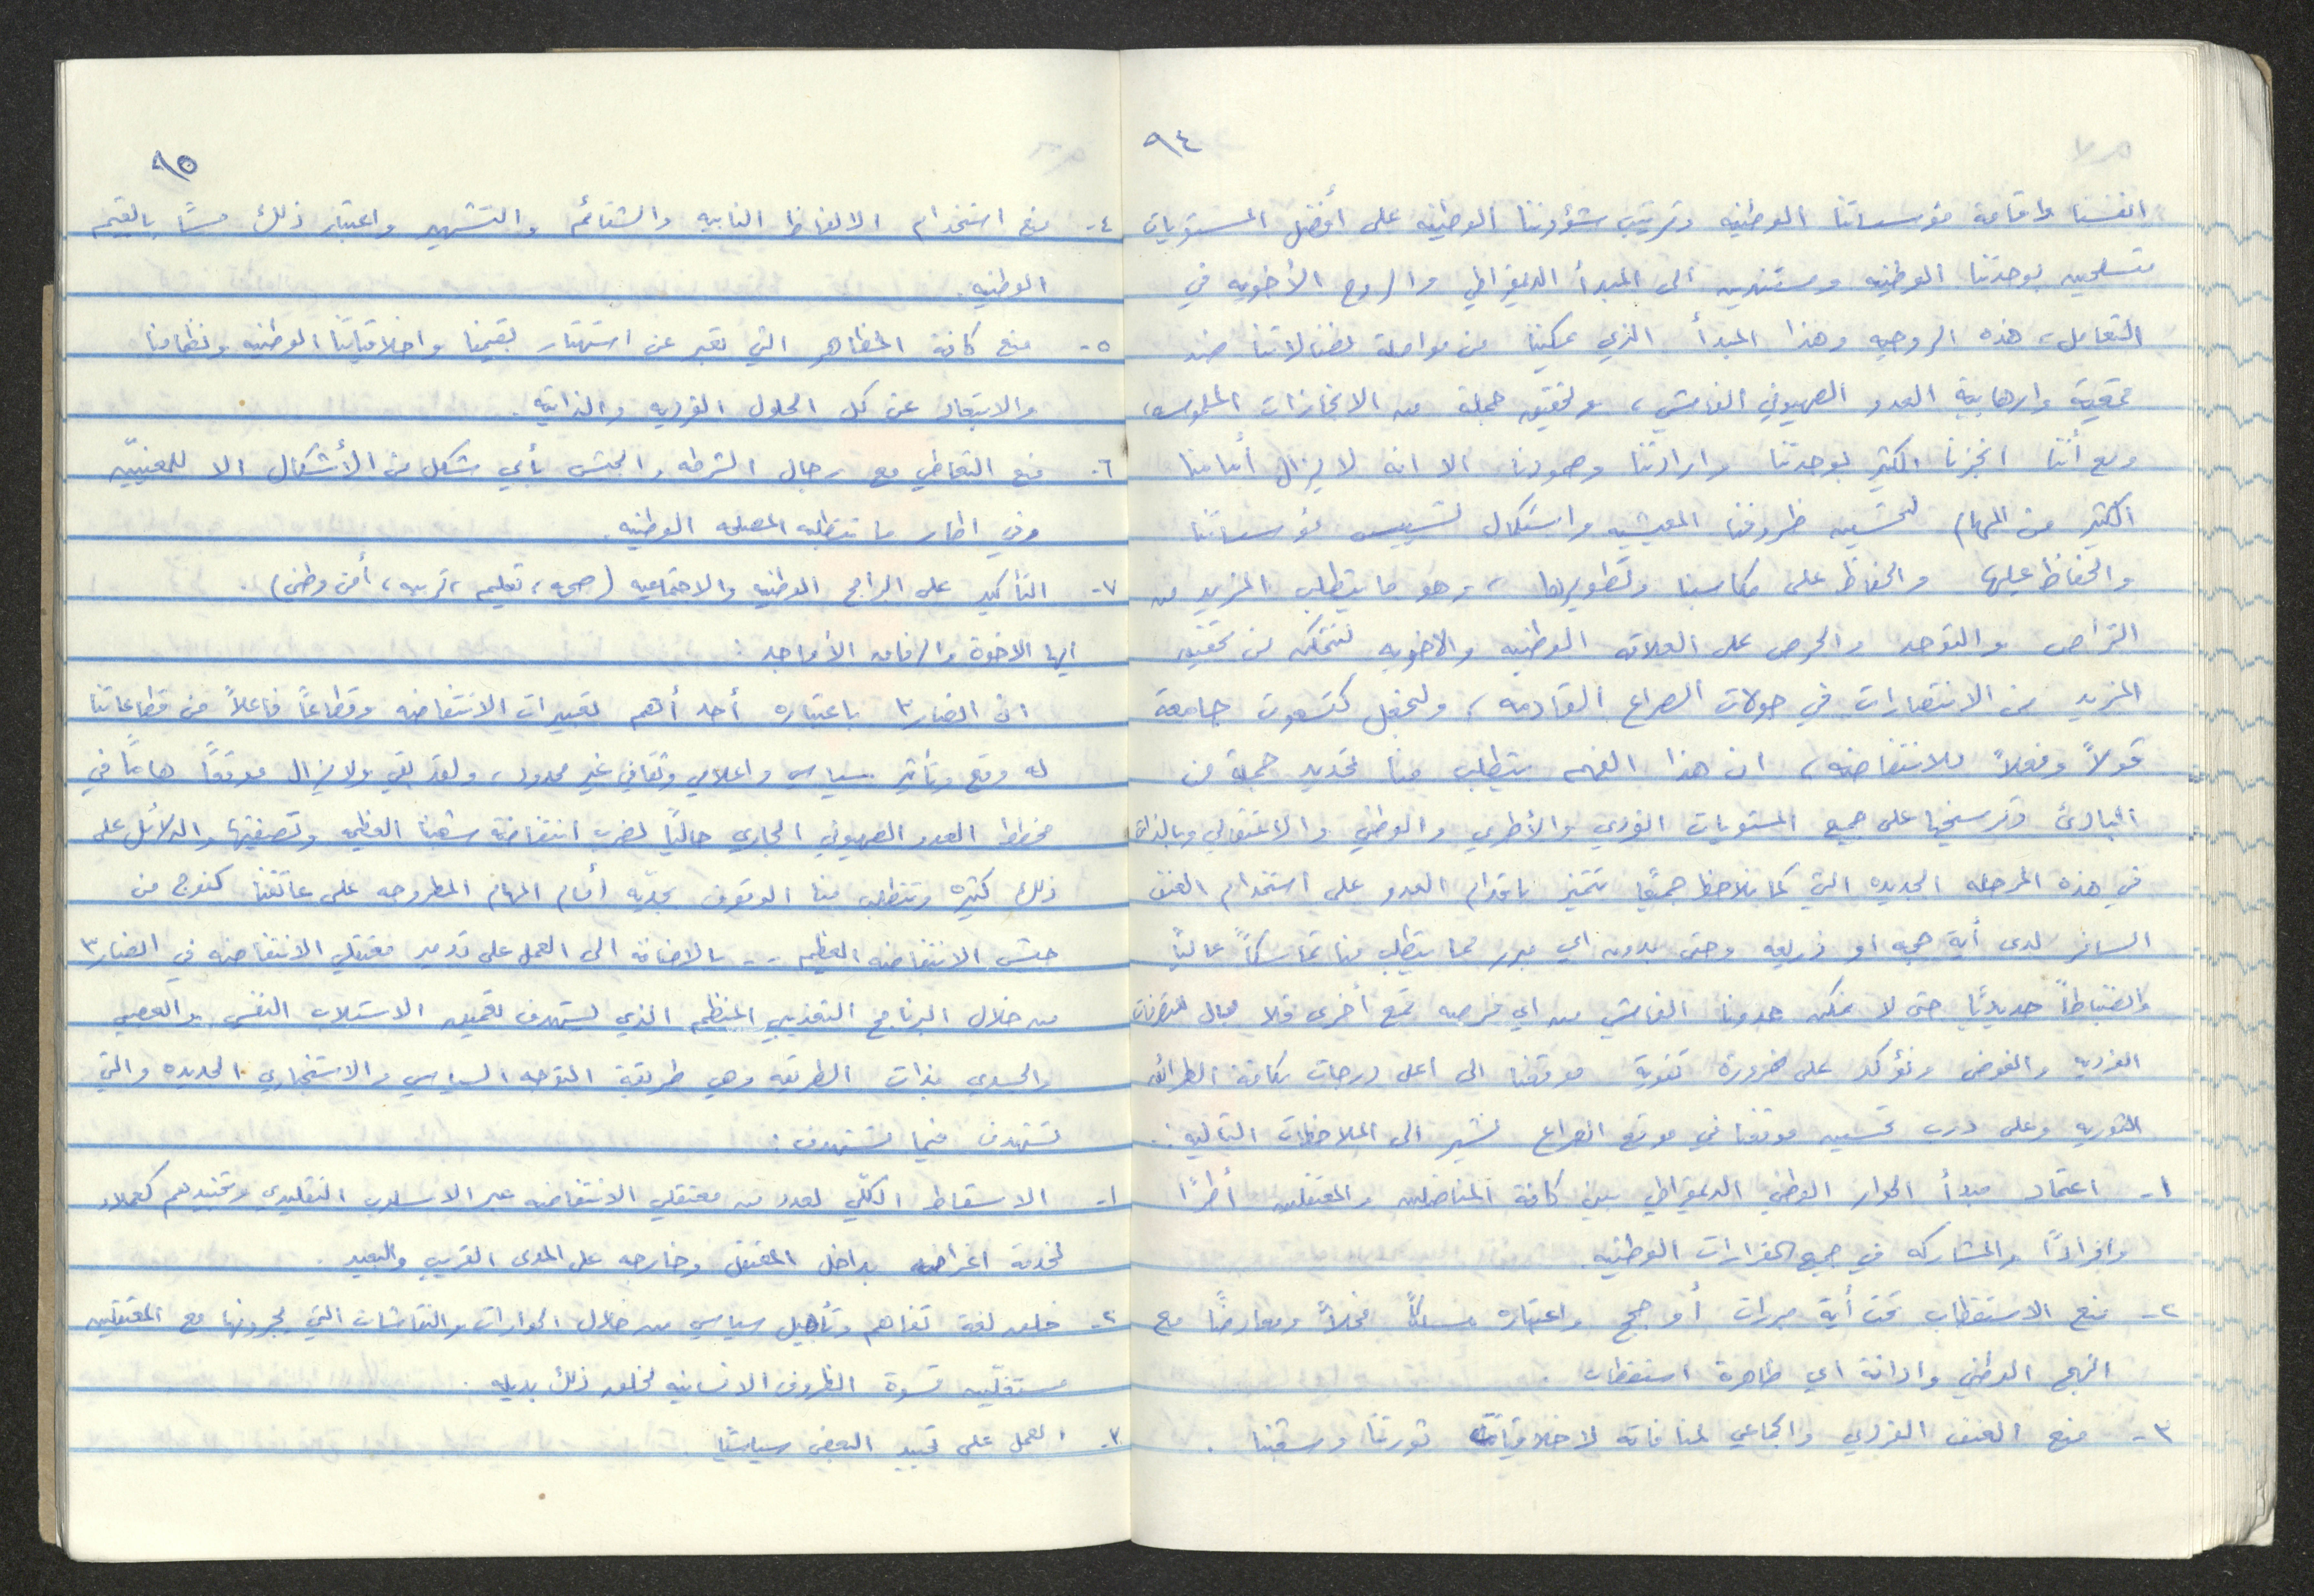 ٩٤
انفسنا واقامة مؤسساتنا الوطنيه وترتيب شؤوننا الوطنيه على أفضل المستويات
متسلحين بوحدتنا الوطنيه ومستندين الى المبدأ الديمقراطي والروح الأخويه في
التعامل، هذه الروحيه وهذا المبدأ الذي مكننا من مواصلة نضالاتنا ضد
قمعية وارهابية العدو الصهيوني الفاشي، وتحقيق جملة من الانجازات الملموسه،
ومع أننا انجزنا الكثير بوحدتنا وارادتنا وصمودنا الا انه لا يزال أمامنا
الكثير من المهام لتحسين ظروفنا المعيشيه واستكمال تسييس مؤسساتنا
والحفاظ عليها والحفاظ على مكاسبنا وتطويرها، وهو ما يتطلب المزيد من
التراص والتوحد والحرص على العلاقه الوطنيه والاخويه لنتمكن من تحقيق
المزيد من الانتصارات في جولات الصراع القادمه، ولنجعل كتسعوت جامعة
قولاً وفعلاً للانتفاضه، ان هذا الفهم يتطلب منا تحديد جملة من
المبادئ وترسيخها على جميع المستويات الفردي والأطري والوطني والاعتقالي وبالذات
في هذه المرحله الجديده التي كما نلاحظ جميعًا تتميز باقدام العدو على استخدام العنف
السافر لدى أية حجه او ذريعه وحتى بدون اي مبرر مما يتطلب منا تماسكاً عاليًا
وانضباطاً حديديًا حتى لا نمكن عدونا الفاشي من اي فرصه قمع أخرى فلا مجال للتصرفات
الفرديه والفوضى ونؤكد على ضرورة تقوية موقفنا الى اعلى درجات بكافة الطرائق
الثوريه وعلى درب تحسين موقعنا في موقع الصراع نشير الى الملاحظات التاليه:
١- اعتماد مبدأ الحوار الوطني الديمقراطي بين كافة المناضلين والمعتقلين أطرًا
وافرادًا والمشاركه في جميع القرارات الوطنيه.
٢- منع الاستقطاب تحت أية مبررات أو حجج واعتباره مسلكًا مخلاً ومعارضًا مع
النهج الوطني وادانة اي ظاهرة استقطاب.
٣- منع العنف الفردي والجماعي لمنافاته لاخلاقيات ثورتنا وشعبنا.
٩٥
٤- منع استخدام الالفاظ النابيه والشتائم والتشهير واعتبار ذلك مسًا بالقيم
الوطنيه.
٥- منع كافة المظاهر التي تعبر عن استهتار بقيمنا واخلاقياتنا الوطنيه ونظامنا
والابتعاد عن كل الحلول الفرديه والذاتيه.
٦- منع التعاطي مع رجال الشرطه والجيش بأي شكل من الأشكال الا للمعنيين
وفي اطار ما تتطلبه المصلحه الوطنيه.
٧- التأكيد على البرامج الوطنيه والاجتماعيه (صحه، تعليم، تربيه، أمن وطني).
ايها الاخوة والرفاق الأماجد:
ان انصار٣ باعتباره أحد أهم تعبيرات الانتفاضه وقطاعاً فاعلاً من قطاعاتنا
له وقع وتأثير سياسي واعلامي وثقافي غير محدود، ولقد بقي ولا يزال موقعًا هامًا في
مخطط العدو الصهيوني الجاري حاليًا لضرب انتفاضة شعبنا العظيمه وتصفيتها والدلائل على
ذلك كثيره وتتطلب منا الوقوف بجديه أمام المهام المطروحه على عاتقنا كنوع من
جيش الانتفاضه العظيم -- بالاضافة الى العمل على تدمير معتقلي الانتفاضه في انصار٣
من خلال البرنامج التعذيبي المنظم الذي يستهدف تعميق الاستلاب النفسي والعصبي
والجسدي بذات الطريقه وهي طريقة التوجه السياسي والاستخباري الجديده والتي
تستهدف فيما تستهدف:
١- الاسقاط الكلّي لعدد من معتقلي الانتفاضه عبر الاسلوب التقليدي وتجنيدهم كعملاء
لخدمة اغراضه بداخل المعتقل وخارجه على المدى القريب والبعيد.
٢- خلق لغة تفاهم وتأهيل سياسي من خلال الحوارات والنقاشات التي يجرونها مع المعتقلين
مستغلين قسوة الظروف الانسانيه لخلق ذلك بديله.
٣- العمل على تحييد البعض سياسيًا